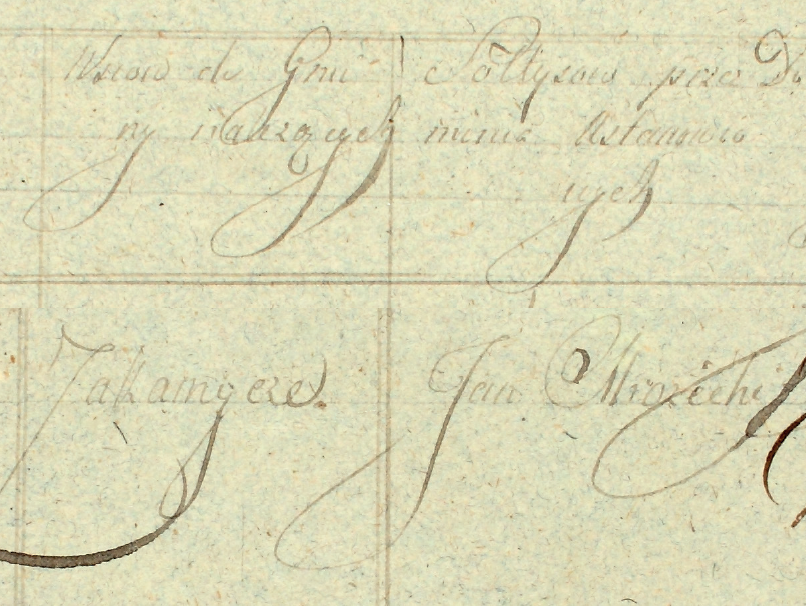 Wsiow do Gmi
ny należących
Sołtysow prze Do
minia Ustanowio
nych
Zakamycze
Jan Mrozicki